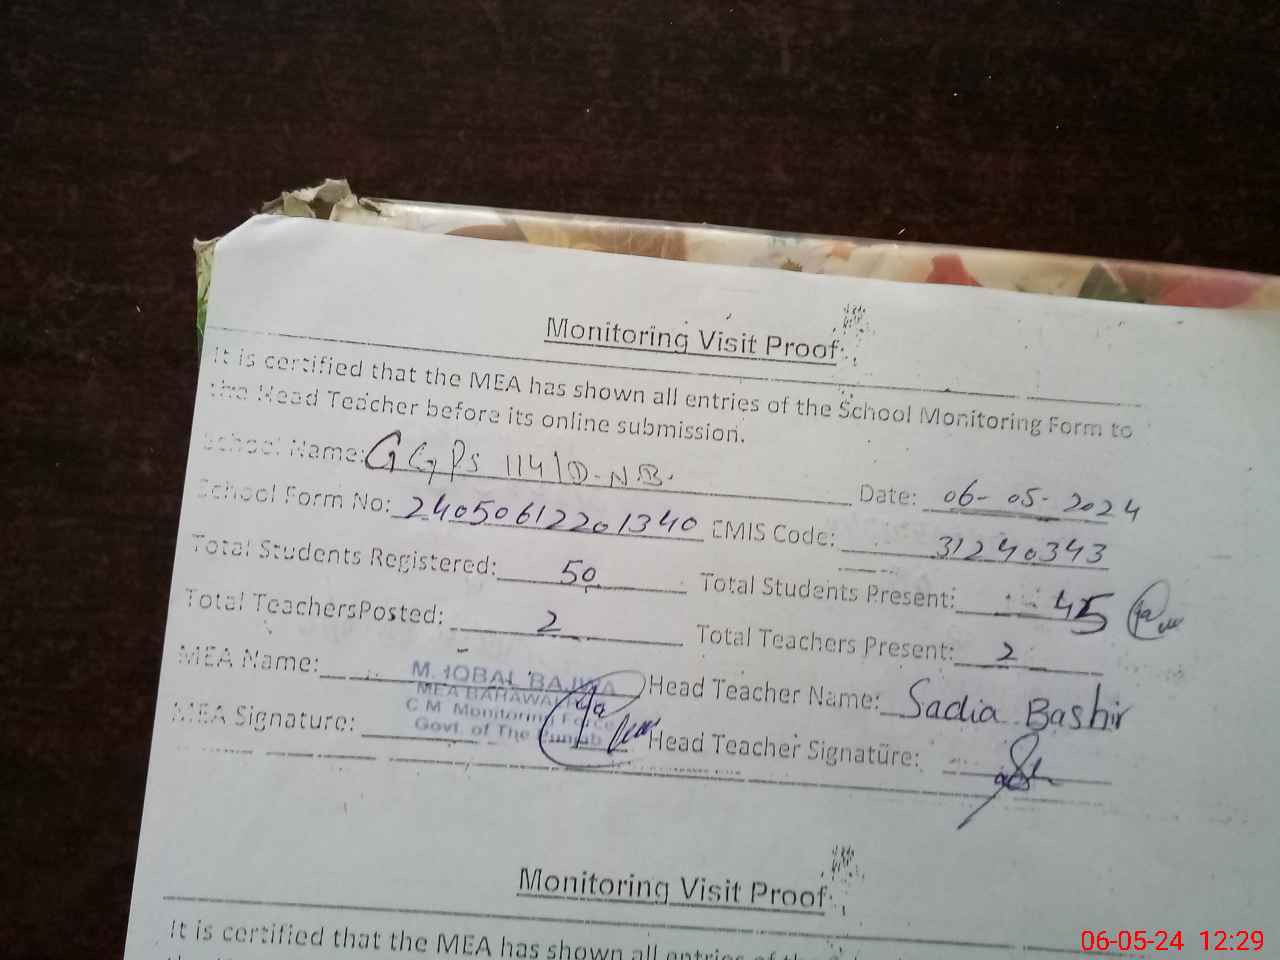 Monitoring Visit Proof
It is certified that the MEA has shown all entries of the School Monitoring Form to
the Head Teacher before its online submission.
School Name: GGPS 114/D.N.B. Date: 06-05-2024
School Form No: 2405061220 1340 EMIS Code: 31240343
Total Students Registered: 50 Total Students Present: 45
Total TeachersPosted: 2 Total Teachers Present: 2
MEA Name: M. IQBAL BAJWA Head Teacher Name: Sadia Bashir
MEA BAHAWAL
C M Monitoring Force
Govt. of The Punjab
MEA Signature: Head Teacher Signature:
Monitoring Visit Proof
It is certified that the MEA has shown all entries of the
06-05-24 12:29